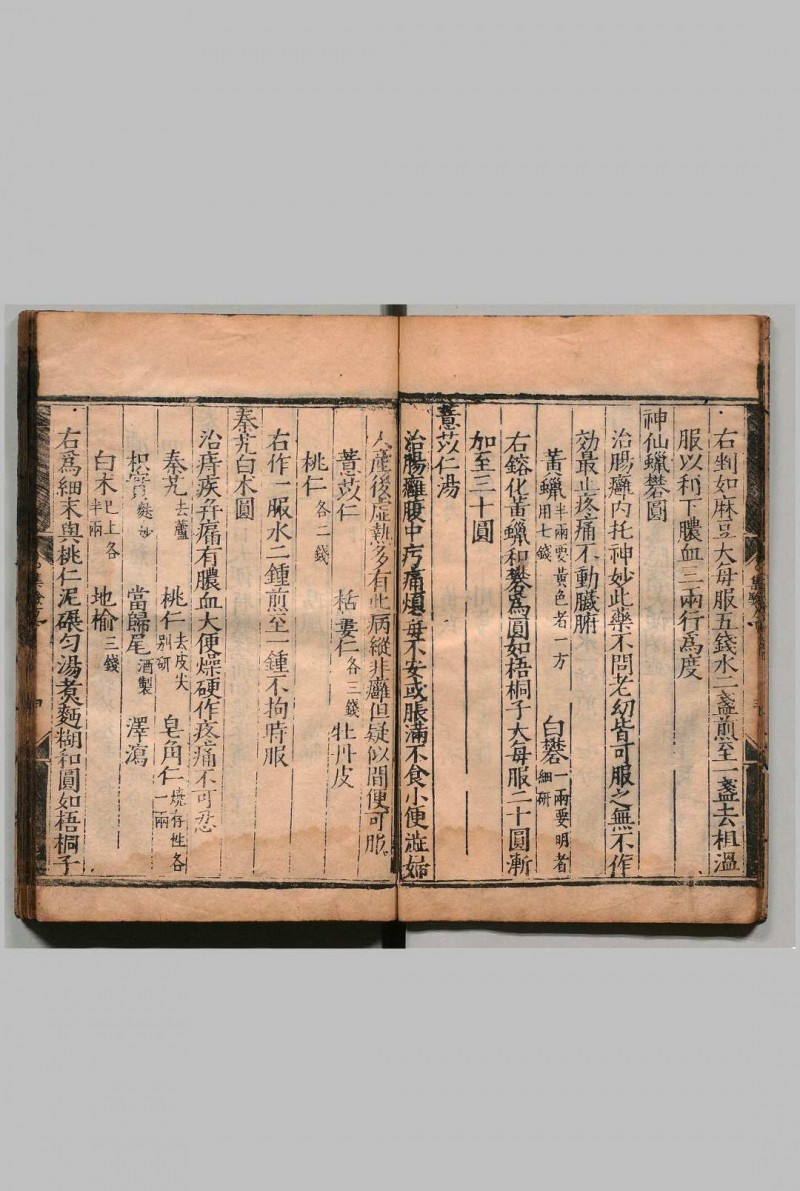 右剉如麻豆大每服五錢水二盞煎至一盞去柤溫
服以利下膿血三兩行爲度
神仙蠟礬圓
治腸癰內托神妙此藥不問老幼皆可服之無不作
効最止疼痛不動臟腑
黃蠟半兩要黃色者一方用七錢 白礬一兩要明者細研
右鎔化黃蠟和礬爲圓如梧桐子大每服二十圓漸
加至三十圓
薏苡仁湯
治腸癰腹中㽲痛煩毒不安或脹滿不食小便澁婦
人產後虛熱多有此病縱非癰但疑似間便可服
薏苡仁 栝蔞仁各三錢 牡丹皮
桃仁各二錢
右作一服水二鍾煎至一鍾不拘時服
秦艽白术圓
治痔疾并痛有膿血大便燥硬作疼痛不可忍
秦艽去蘆 桃仁去皮尖別研 皂角仁燒存性各一兩
枳實麩炒 當歸尾酒製 澤瀉
白术已上各半兩 地榆三錢
右爲細末與桃仁泥碾勻湯煑麵糊和圓如梧桐子